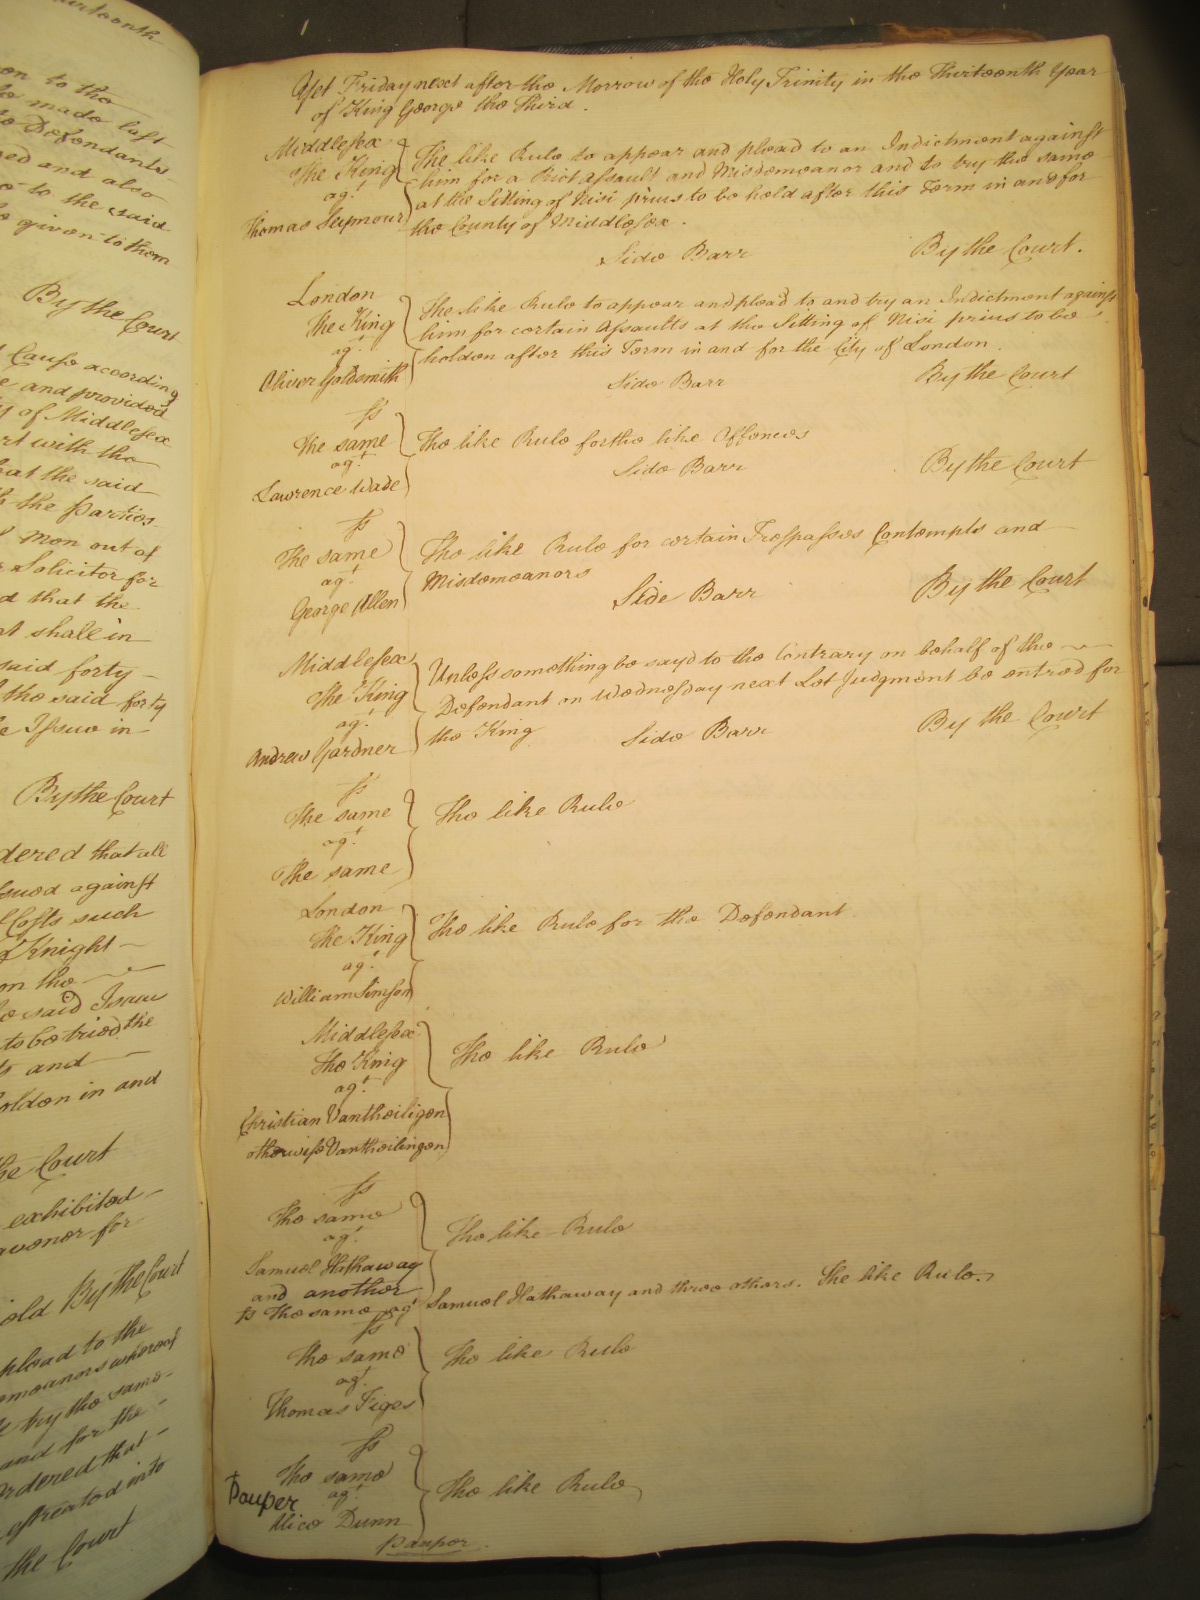 airteenth
on to the
be made last
he Defendants
ed and also
to the said
be given to them
By the Court
Cause according
e and provided
ty of Middlesex
rt with the
hat the said
the Parties
Men out of
Solicitor for
d that the
at shall in
said forty
the said forty
e Issue in
By the Court
dered that all
ssued against
Costs such
Knight
on the
he said Issue
to be tried the
s and
olden in and
he Court
exhibited
avenor for
old By the Court
plead to the
emeanors whereof
try the same
and for the
ordered that
estreated into
the Court
Yet Friday next after the Morrow of the Holy Trinity in the Thirteenth Year
of King George the Third.
Middlesex
The King
agt.
Thomas Seymour
The like Rule to appear and plead to an Indictment against
him for a Riot Assault and Misdemeanor and to try the same
at the Sitting of Nisi prius to be held after this Term in and for
the County of Middlesex.
Side Barr By the Court.
London
The King
agt.
Oliver Goldsmith
The like Rule to appear and plead to and try an Indictment against
him for certain Assaults at the Sitting of Nisi prius to be
holden after this Term in and for the City of London.
Side Barr By the Court
ss
The same
agt.
Lawrence Wade
The like Rule for the like Offences
Side Barr By the Court
ss
The same
agt.
George Allen
The like Rule for certain Trespasses Contempts and
Misdemeanors
Side Barr By the Court
Middlesex
The King
agt.
Andrew Gardner
Unless something be sayd to the Contrary on behalf of the
Defendant on Wednesday next Let Judgment be entred for
the King Side Barr By the Court
ss
The same
agt.
The same
The like Rule
London
The King
agt.
William Simson
The like Rule for the Defendant
Middlesex
The King
agt.
Christian Vantheiligen
otherwise Vantheilingen
The like Rule
ss
The same
agt.
Samuel Hathaway
and another
The like Rule
ss The same agt Samuel Hathaway and three others. The like Rule.
ss
The same
agt.
Thomas Figes
The like Rule
ss
The same
Pauper agt.
Alice Dunn
Pauper.
The like Rule